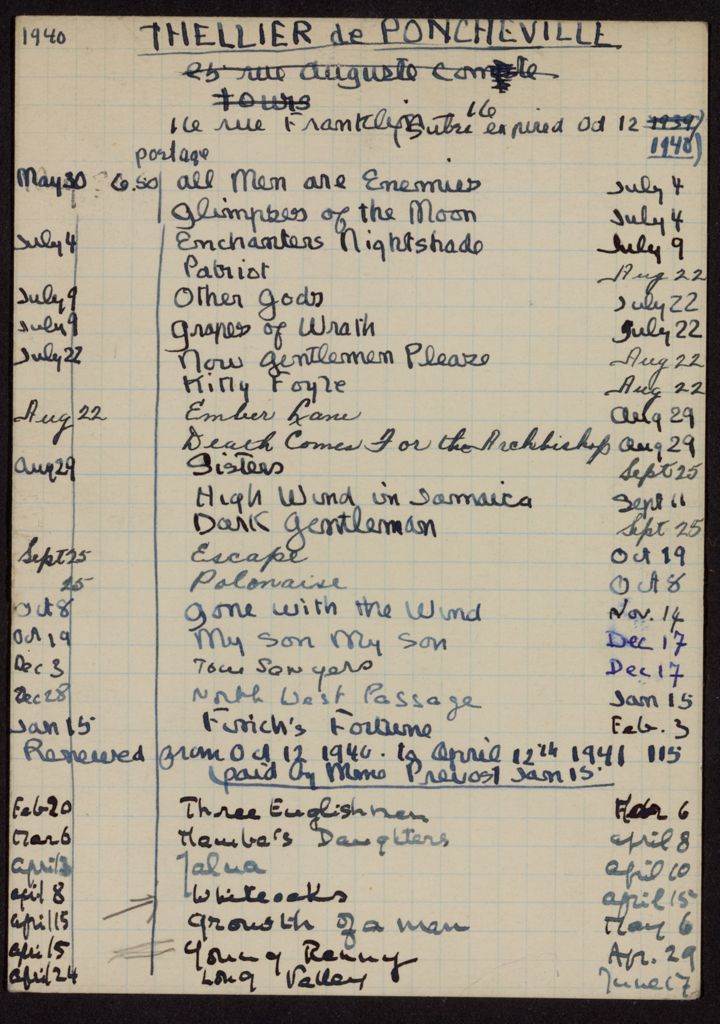 1940 THELLIER de PONCHEVILLE
25 rue Auguste Compte
tours
16
16 rue Franklin (Subs expired Oct 12 1939)
postage 1940)
May 30 6.50 All Men are Enemies July 4
Glimpses of the Moon July 4
July 4 Enchanters Nightshade July 9
Patriot Aug 22
July 9 Other Gods July 22
July 9 Grapes of Wrath July 22
July 22 Now Gentlemen Please Aug 22
Kitty Foyle Aug 22
Aug 22 Ember Lane Aug 29
Death Comes For the Archbishop Aug 29
Aug 29 Sisters Sept 25
High Wind in Jamaica Sept 11
Dark Gentleman Sept 25
Sept 25 Escape Oct 19
25 Polonaise Oct 8
Oct 8 Gone with the Wind Nov. 14
Oct 19 My Son My Son Dec 17
Dec 3 Tom Sawyers Dec 17
Dec 28 North West Passage Jan 15
Jan 15 Finch's Fortune Feb. 3
Renewed from Oct 12 1940. to April 12th 1941 115
(paid by Mme Prevost Jan 15
Feb 20 Three Englishmen Mar 6
Mar 6 Mamba's Daughters April 8
April 3 Jalna April 10
April 8 Whiteoaks April 15
April 15 Growth of a man May 6
April 15 Young Renny Apr. 29
April 24 Long Valley June 17